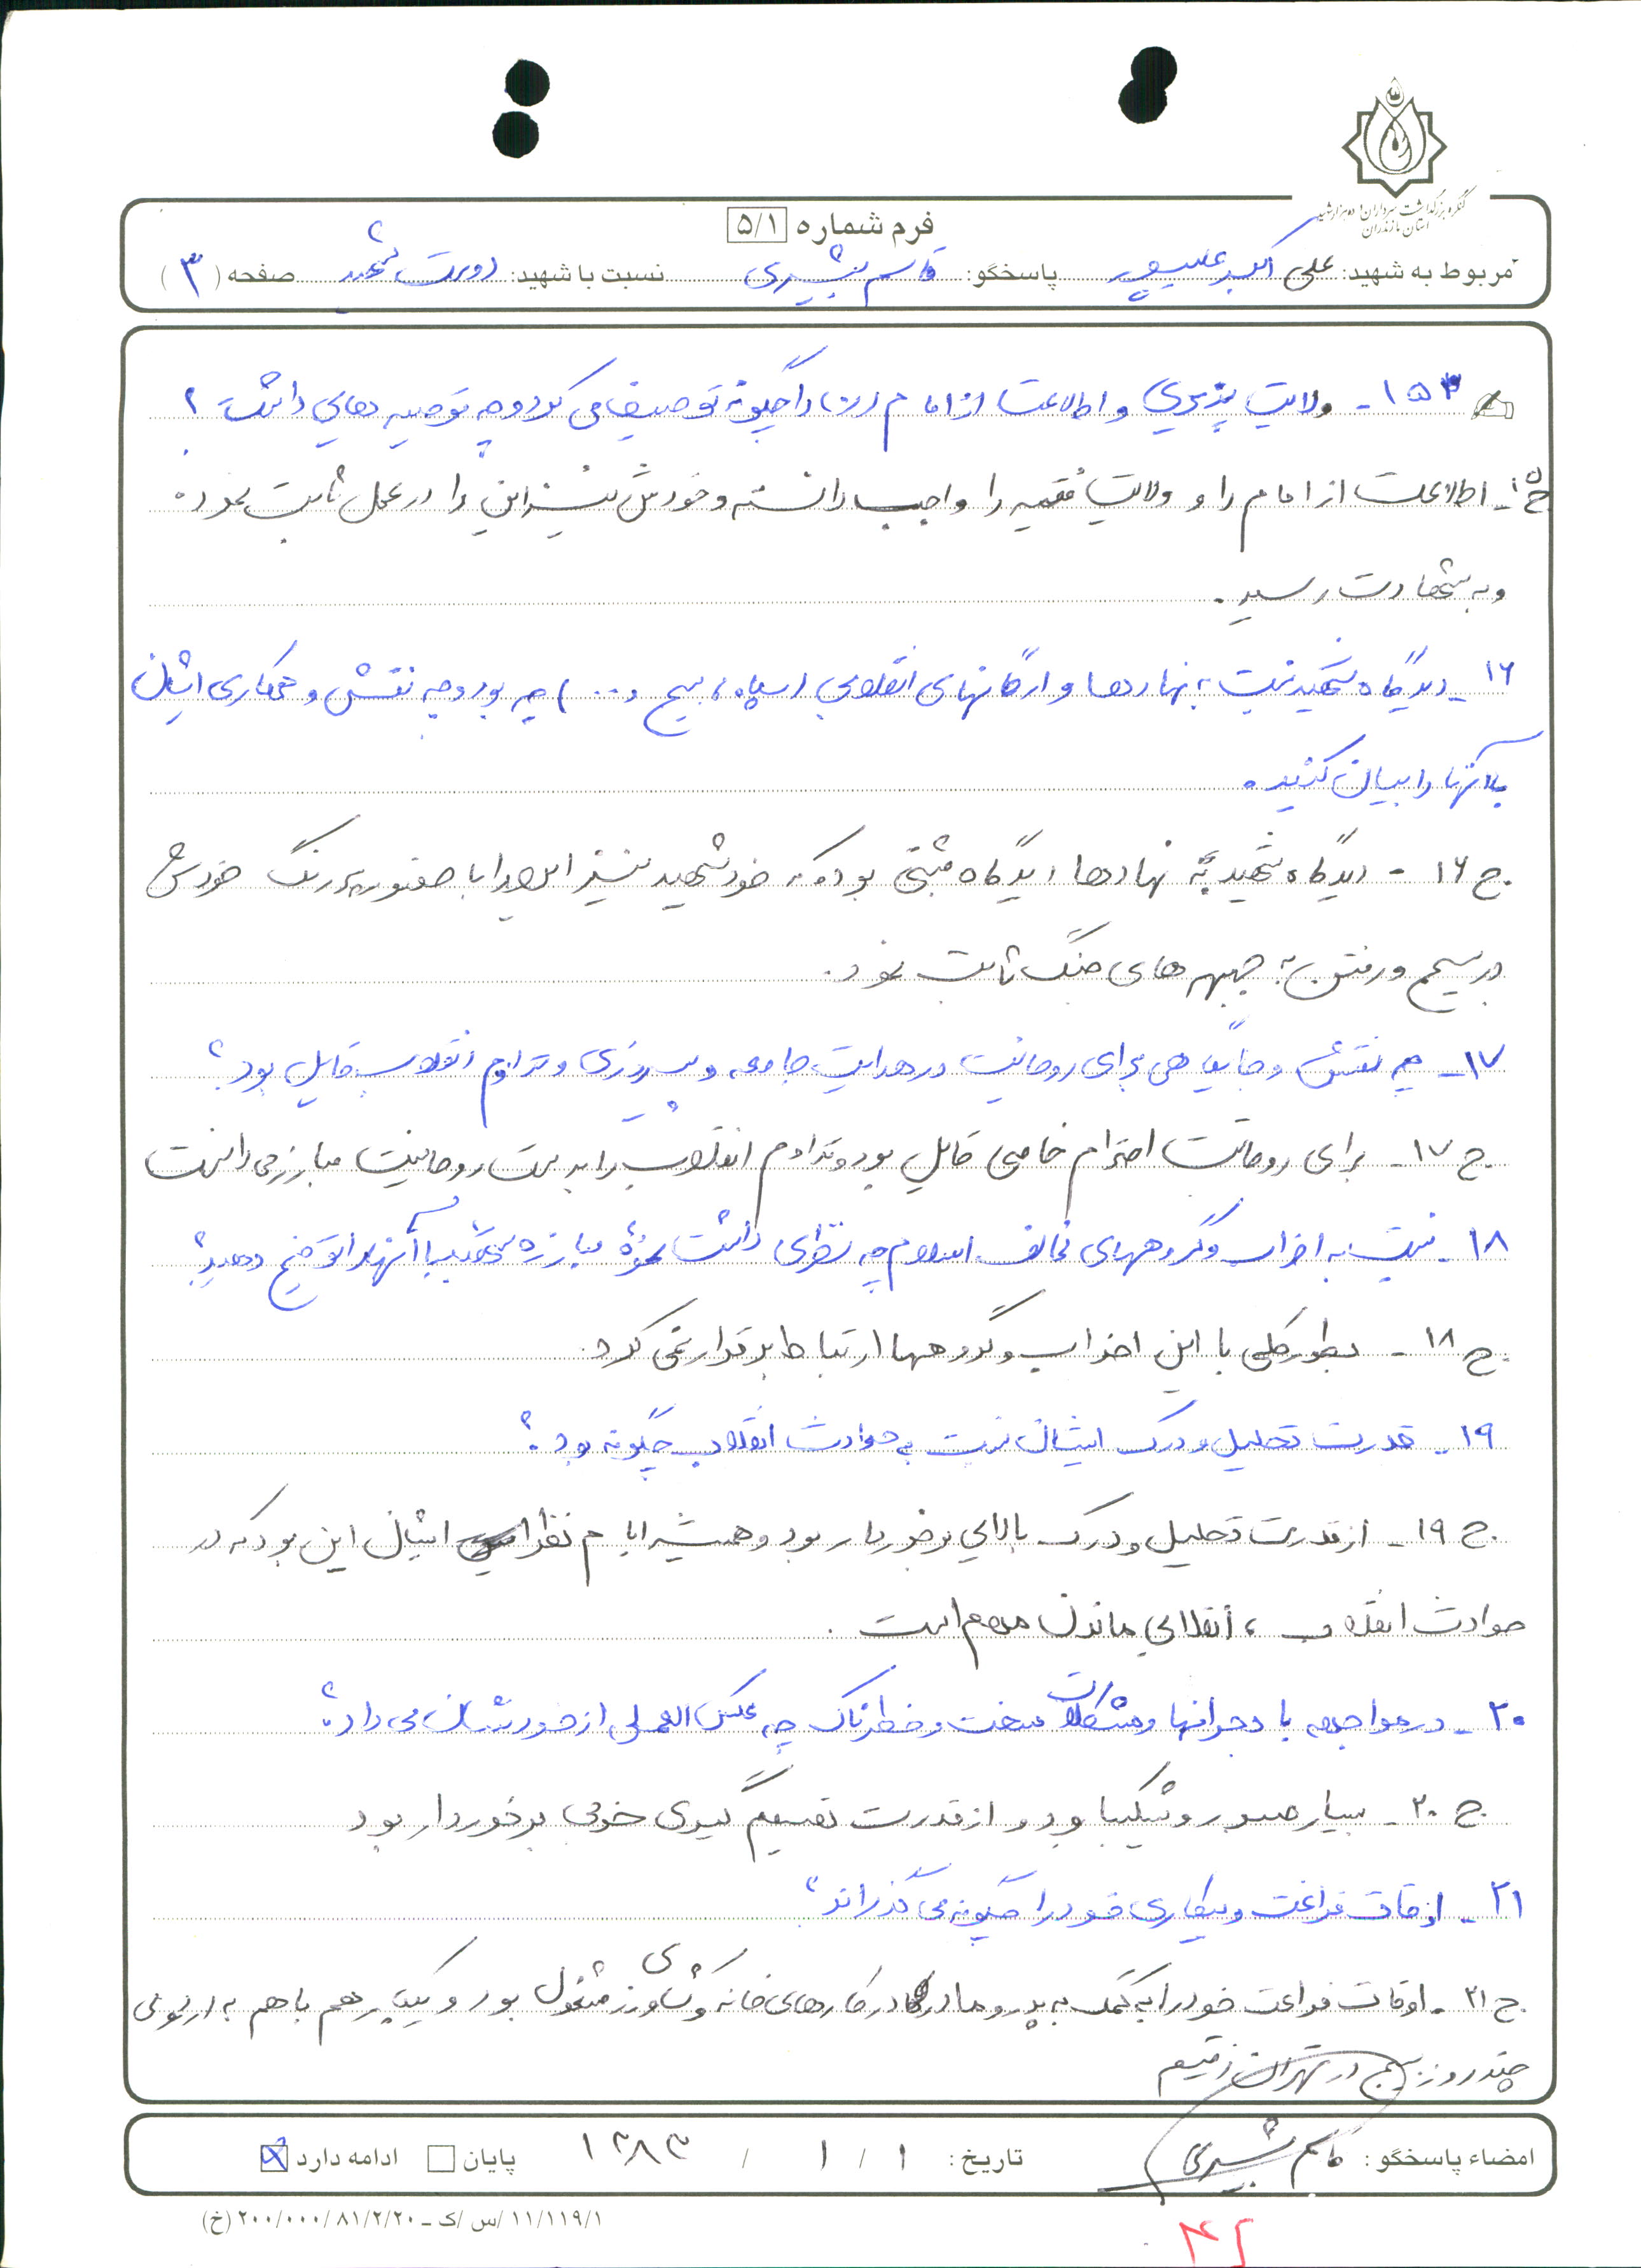 کنگره بزرگداشت سرداران و ده هزار شهید
استان مازندران
فرم شماره ۵/۱
مربوط به شهید: علی اکبر پاسخگو: قاسم بشیری نسبت با شهید: دوست شهید صفحه (۳)
۱۵ - ولایت پذیری و اطاعت از امام (ره) را چگونه توصیف می کرد و چه توصیه هایی داشت؟
ج ۱۵ - اطاعت از امام را و ولایت فقیه را واجب دانسته و خودش نیز این را در عمل ثابت نمود.
و به شهادت رسید.
۱۶ - دیدگاه شهید نسبت به نهادها و ارگانهای انقلابی (سپاه، بسیج و ...) چه بود و چه نقش و همکاری ایشان
با آنها را بیان کنید.
ج ۱۶ - دیدگاه شهید به نهادها دیدگاه مثبتی بود که خود شهید نیز این را با حضور پررنگ خودش
در بسیج و رفتن به جبهه های جنگ ثابت نمود.
۱۷ - چه نقش و جایگاهی برای روحانیت در هدایت جامعه و پیروزی و تداوم انقلاب قایل بود؟
ج ۱۷ - برای روحانیت احترام خاصی قایل بود و تداوم انقلاب را بدست روحانیت مبارز می دانست
۱۸ - نسبت به احزاب و گروههای مخالف اسلام چه نظری داشت نحوه مبارزه شهید با آنها را توضیح دهید؟
ج ۱۸ - بطور کلی با این احزاب و گروهها ارتباط برقرار نمی کرد.
۱۹ - قدرت تحلیل و درک ایشان نسبت به حوادث انقلاب چگونه بود؟
ج ۱۹ - از قدرت تحلیل و درک بالایی برخوردار بود و همیشه نظر ایشان این بود که در
حوادث انقلاب، انقلابی ماندن مهم است.
۲۰ - در مواجهه با بحرانها و مشکلات سخت و خطرناک چه عکس العملی از خود نشان می داد؟
ج ۲۰ - بسیار صبور و شکیبا بود و از قدرت تصمیم گیری خوبی برخوردار بود
۲۱ - اوقات فراغت و بیکاری خود را چگونه می گذراند؟
ج ۲۱ - اوقات فراغت خود را به کمک به پدر و مادر در کارهای خانه و کشاورزی مشغول بود و یکبار هم با هم به اردوی
چند روز بسیج در تهران رفتیم
امضاء پاسخگو: قاسم بشیری تاریخ: ۱ / ۱ / ۱۳۸۳ پایان ادامه دارد
۱۱/۱۱۹/۱ /س /ک - ۲۰۰/۰۰۰/۸۱/۲/۲۰ (خ)